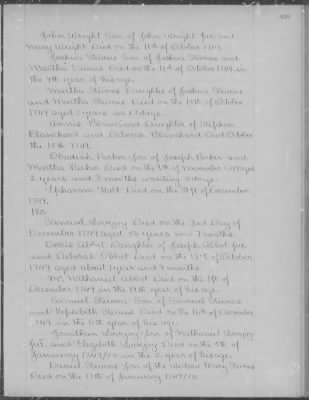 John Wright Son of John Wright Jur. and
Mary Wright Died on the 11th of October 1749.
Joshua Stevens Son of Joshua Stevens and
Martha Stevens Died on the 11th of October 1749 in
the 7th year of his age.
Martha Stevens Daughter of Joshua Stevens
and Martha Stevens Died on the 15th of October
1749 aged years and days.
Annie Blanchard Daughter of Stephen
Blanchard and Deborah Blanchard Died October
the 15th 1749.
Obadiah Parker Son of Joseph Parker and
Martha Parker Died on the of November aged
2 years and 3 months wanting days.
Ephraim Holt Died on the of December
1749.
No.
Samuel Lovejoy Died on the 3rd Day of
December 1749 aged 56 years and 7 months
Dorcas Abbot Daughter of Joseph Abbot Jur.
and Deborah Abbot Died on the of October
1749 aged about 1 year and 9 months
Mr. Nathaniel Abbot Died on the 1st of
December 1749 in the year of his age.
Samuel Stevens Son of Samuel Stevens
and Hephzibeth Stevens Died on the 16th of December
1749 in the 6th year of his age.
Jonathan Lovejoy Son of Nathaniel Lovejoy
Jur. and Elizabeth Lovejoy Died on the 5th of
January 1749/50 in the year of his age.
Daniel Stevens Son of the Widow Mary Stevens
Died on the 11th of January 1749/50